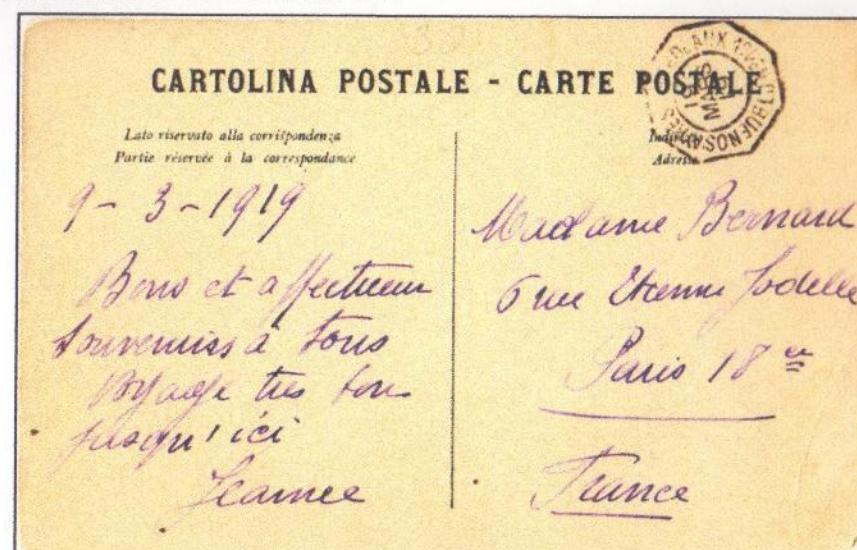 CARTOLINA POSTALE - CARTE POSTALE
Lato riservato alla corrispondenza
Partie réservée à la correspondance
Adresse
9-3-1919
Bons et affectueux
souvenirs à tous
Voyage très bon
jusqu'ici
Jeanne
Madame Bernard
6 rue Etienne Jodelle
Paris 18e
France
BUENOS AYRES